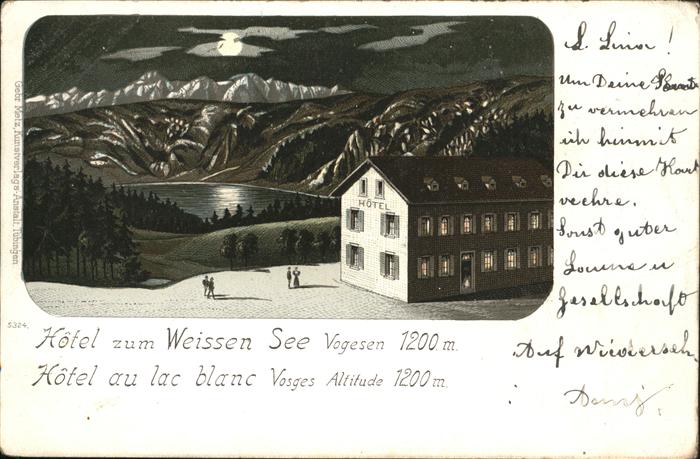 L. Lina!
Um Deine
zu vermehren
ich hiermit
Dir diese Kart
verehre.
Sonst guter
Laune u
Gesellschaft
Auf Wiederseh.
HÔTEL
Gebr. Metz, Kunstverlags-Anstalt, Tübingen.
5324.
Hôtel zum Weissen See Vogesen 1200 m.
Hôtel au lac blanc Vosges Altitude 1200 m.